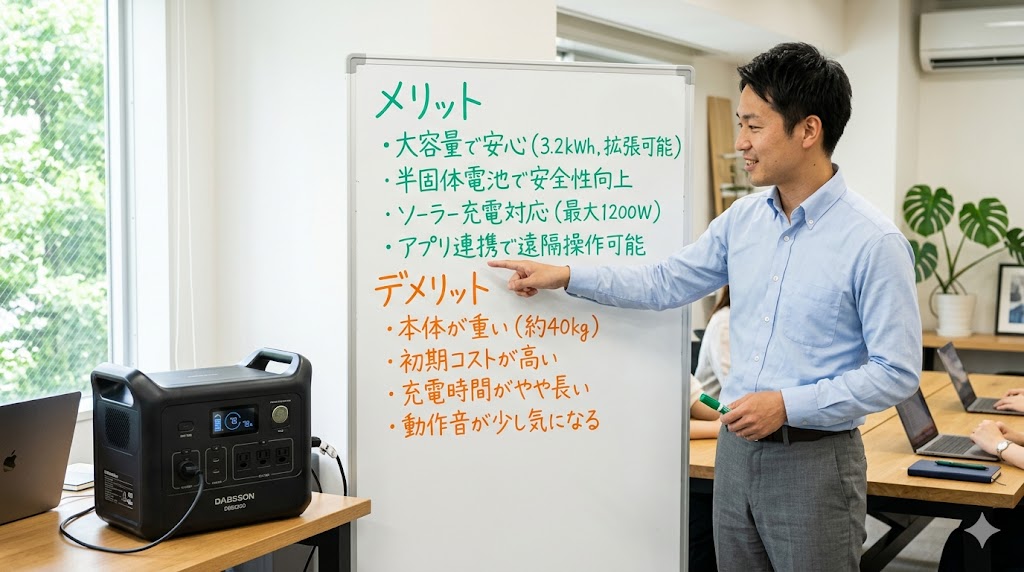 メリット
・大容量で安心(3.2kWh,拡張可能)
・半固体電池で安全性向上
・ソーラー充電対応(最大1200W)
・アプリ連携で遠隔操作可能
デメリット
・本体が重い(約40kg)
・初期コストが高い
・充電時間がやや長い
・動作音が少し気になる
DABSSON